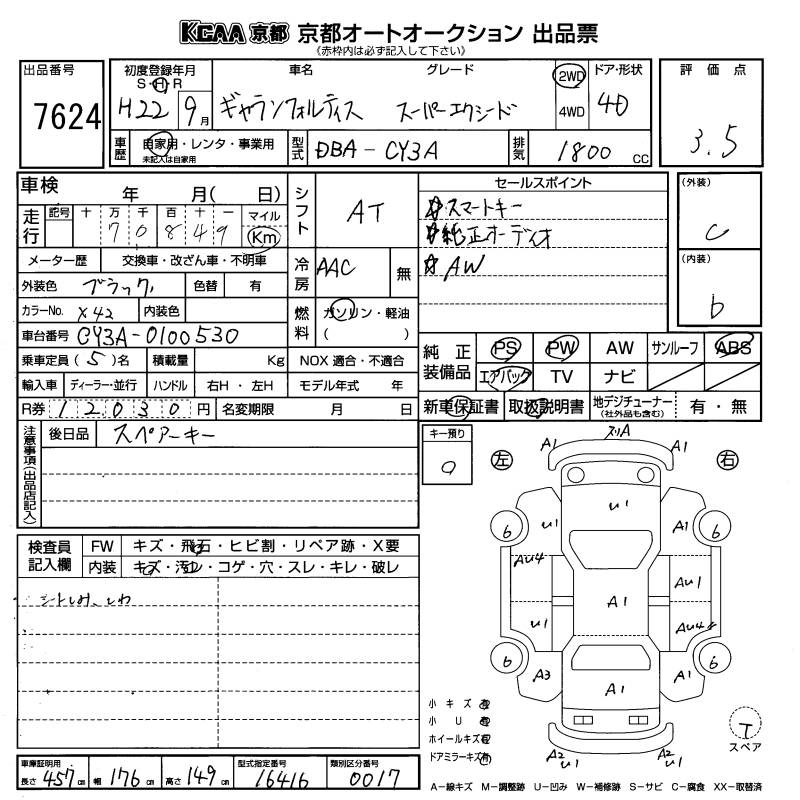 KCAA 京都 京都オートオークション 出品票
(赤枠内は必ず記入して下さい)
出品番号
7624
初度登録年月 車名 グレード
S・H・R
H22 9月 ギャランフォルティス スーパーエクシード
2WD
4WD
ドア・形状
4D
評価点
3.5
車歴 自家用・レンタ・事業用
未記入は自家用
型式 DBA-CY3A
排気 1800 CC
車検 年 月( 日)
走行 記号 十 万 千 百 十 一 マイル
7 0 8 4 9 Km
シフト AT
セールスポイント
☆スマートキー
☆純正オーディオ
☆AW
(外装)
C
(内装)
b
メーター歴 交換車・改ざん車・不明車
外装色 ブラック 色替 有
冷房 AAC 無
カラーNo. X42 内装色
燃料 ガソリン・軽油
( )
車台番号 CY3A-0100530
乗車定員 (5)名 積載量 Kg NOX 適合・不適合
輸入車 ディーラー・並行 ハンドル 右H・左H モデル年式 年
R券 12030円 名変期限 月 日
純正装備品 PS PW AW サンルーフ ABS
エアバック TV ナビ
新車保証書 取扱説明書 地デジチューナー
(社外品も含む) 有・無
注意事項(出品店記入)
後日品 スペアーキー
キー預り
0
検査員記入欄
FW キズ・飛石・ヒビ割・リペア跡・X要
内装 キズ・汚レ・コゲ・穴・スレ・キレ・破レ
シートしみ、しわ
左 右
A1 スリA A1
U1
6 U1 A1 6
AU4 AU1
A1
U1 AU4
6 A3 A1 A1 6
A2 U1 A2 U1
小キズ有
小U有
ホイールキズ有
ドアミラーキズ有
T
スペア
車庫証明用
長さ 457cm 幅 176cm 高さ 149cm
型式指定番号
16416
類別区分番号
0017
A−線キズ M−調整跡 U−凹み W−補修跡 S−サビ C−腐食 XX−取替済